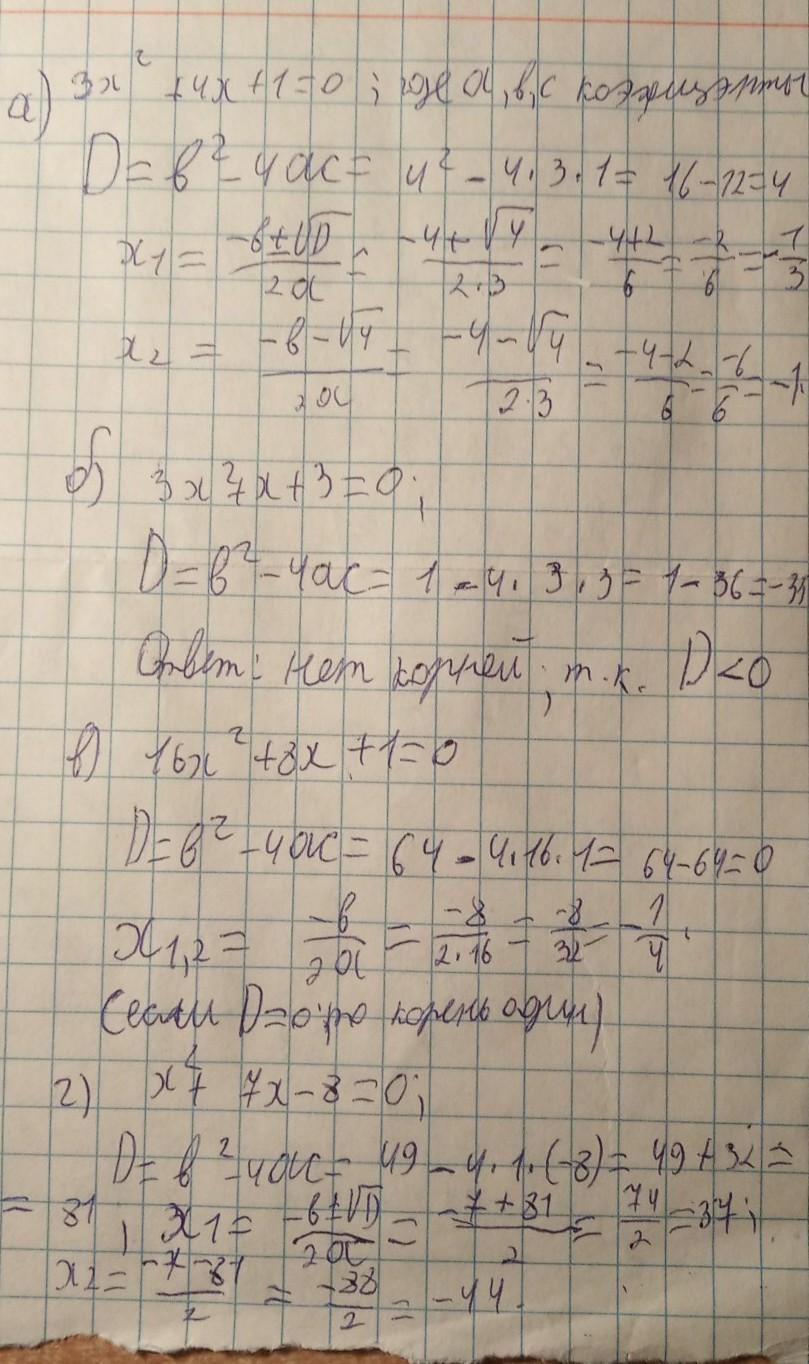 а) 3x² + 4x + 1 = 0 ; где а, в, с коэфиценты
D = в² - 4ас = 4² - 4·3·1 = 16 - 12 = 4
x₁ = (-в ± √D)/(2а) = (-4 + √4)/(2·3) = (-4+2)/6 = -2/6 = -1/3
x₂ = (-в - √4)/(2а) = (-4 - √4)/(2·3) = (-4-2)/6 = -6/6 = -1.
б) 3x² + x + 3 = 0;
D = в² - 4ас = 1 - 4·3·3 = 1 - 36 = -35
Ответ: нет корней, т.к. D < 0
в) 16x² + 8x + 1 = 0
D = в² - 4ас = 64 - 4·16·1 = 64 - 64 = 0
x₁,₂ = -в/(2а) = -8/(2·16) = -8/32 = -1/4.
(если D = 0; то корень один)
г) x² + 7x - 8 = 0;
D = в² - 4ас = 49 - 4·1·(-8) = 49 + 32 =
= 81 ; x₁ = (-в ± √D)/(2а) = (-7 + 81)/2 = 74/2 = 37;
x₂ = (-7 - 81)/2 = -88/2 = -44.